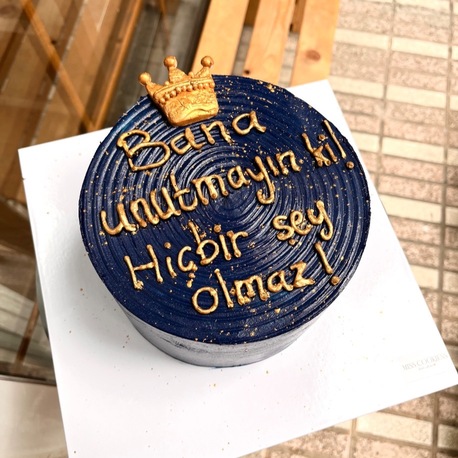 Bana
unutmayın ki!
Hiçbir şey
olmaz!